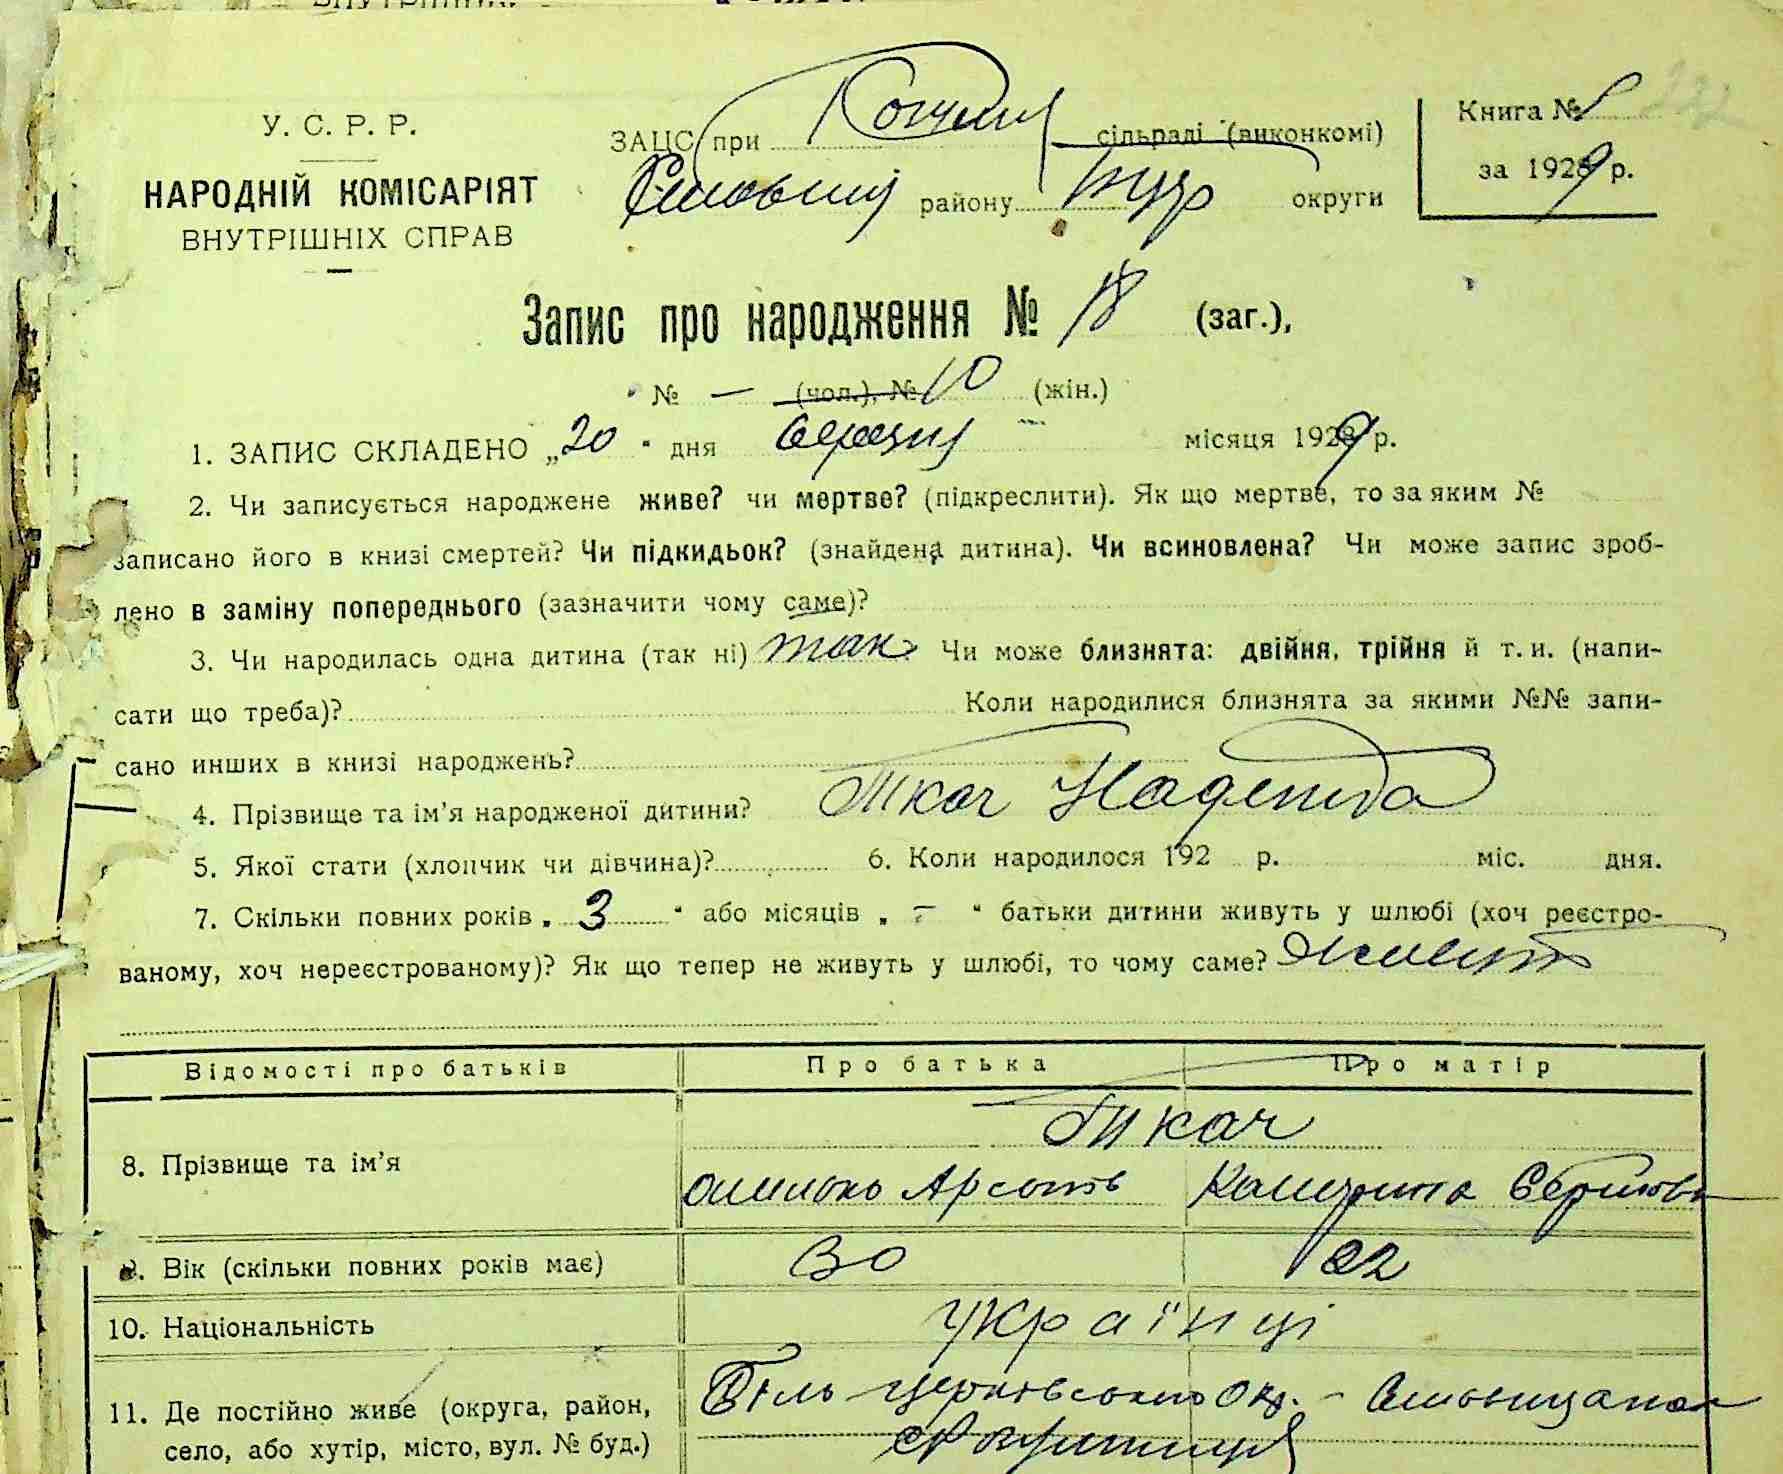 У. С. Р. Р.
НАРОДНІЙ КОМІСАРІЯТ
ВНУТРІШНІХ СПРАВ
ЗАЦС при сільраді (виконкомі)
району округи
Книга №
за 1929 р.
Запис про народження № 18 (заг.),
№ — (чол.), № 10 (жін.)
1. ЗАПИС СКЛАДЕНО „20“ дня березня місяця 1929 р.
2. Чи записується народжене живе? чи мертве? (підкреслити). Як що мертве, то за яким №
записано його в книзі смертей? Чи підкидьок? (знайдена дитина). Чи всиновлена? Чи може запис зроб-
лено в заміну попереднього (зазначити чому саме)?
3. Чи народилась одна дитина (так ні) так Чи може близнята: двійня, трійня й т. и. (напи-
сати що треба)? Коли народилися близнята за якими №№ запи-
сано инших в книзі народжень?
4. Прізвище та ім'я народженої дитини? Ткач Надежда
5. Якої стати (хлопчик чи дівчина)? 6. Коли народилося 192 р. міс. дня.
7. Скільки повних років „ 3 “ або місяців „ – “ батьки дитини живуть у шлюбі (хоч реєстро-
ваному, хоч нереєстрованому)? Як що тепер не живуть у шлюбі, то чому саме? Живуть
Відомості про батьків Про батька Про матір
Ткач
8. Прізвище та ім'я
9. Вік (скільки повних років має) 30 22
10. Національність українці
11. Де постійно живе (округа, район,
село, або хутір, місто, вул. № буд.)